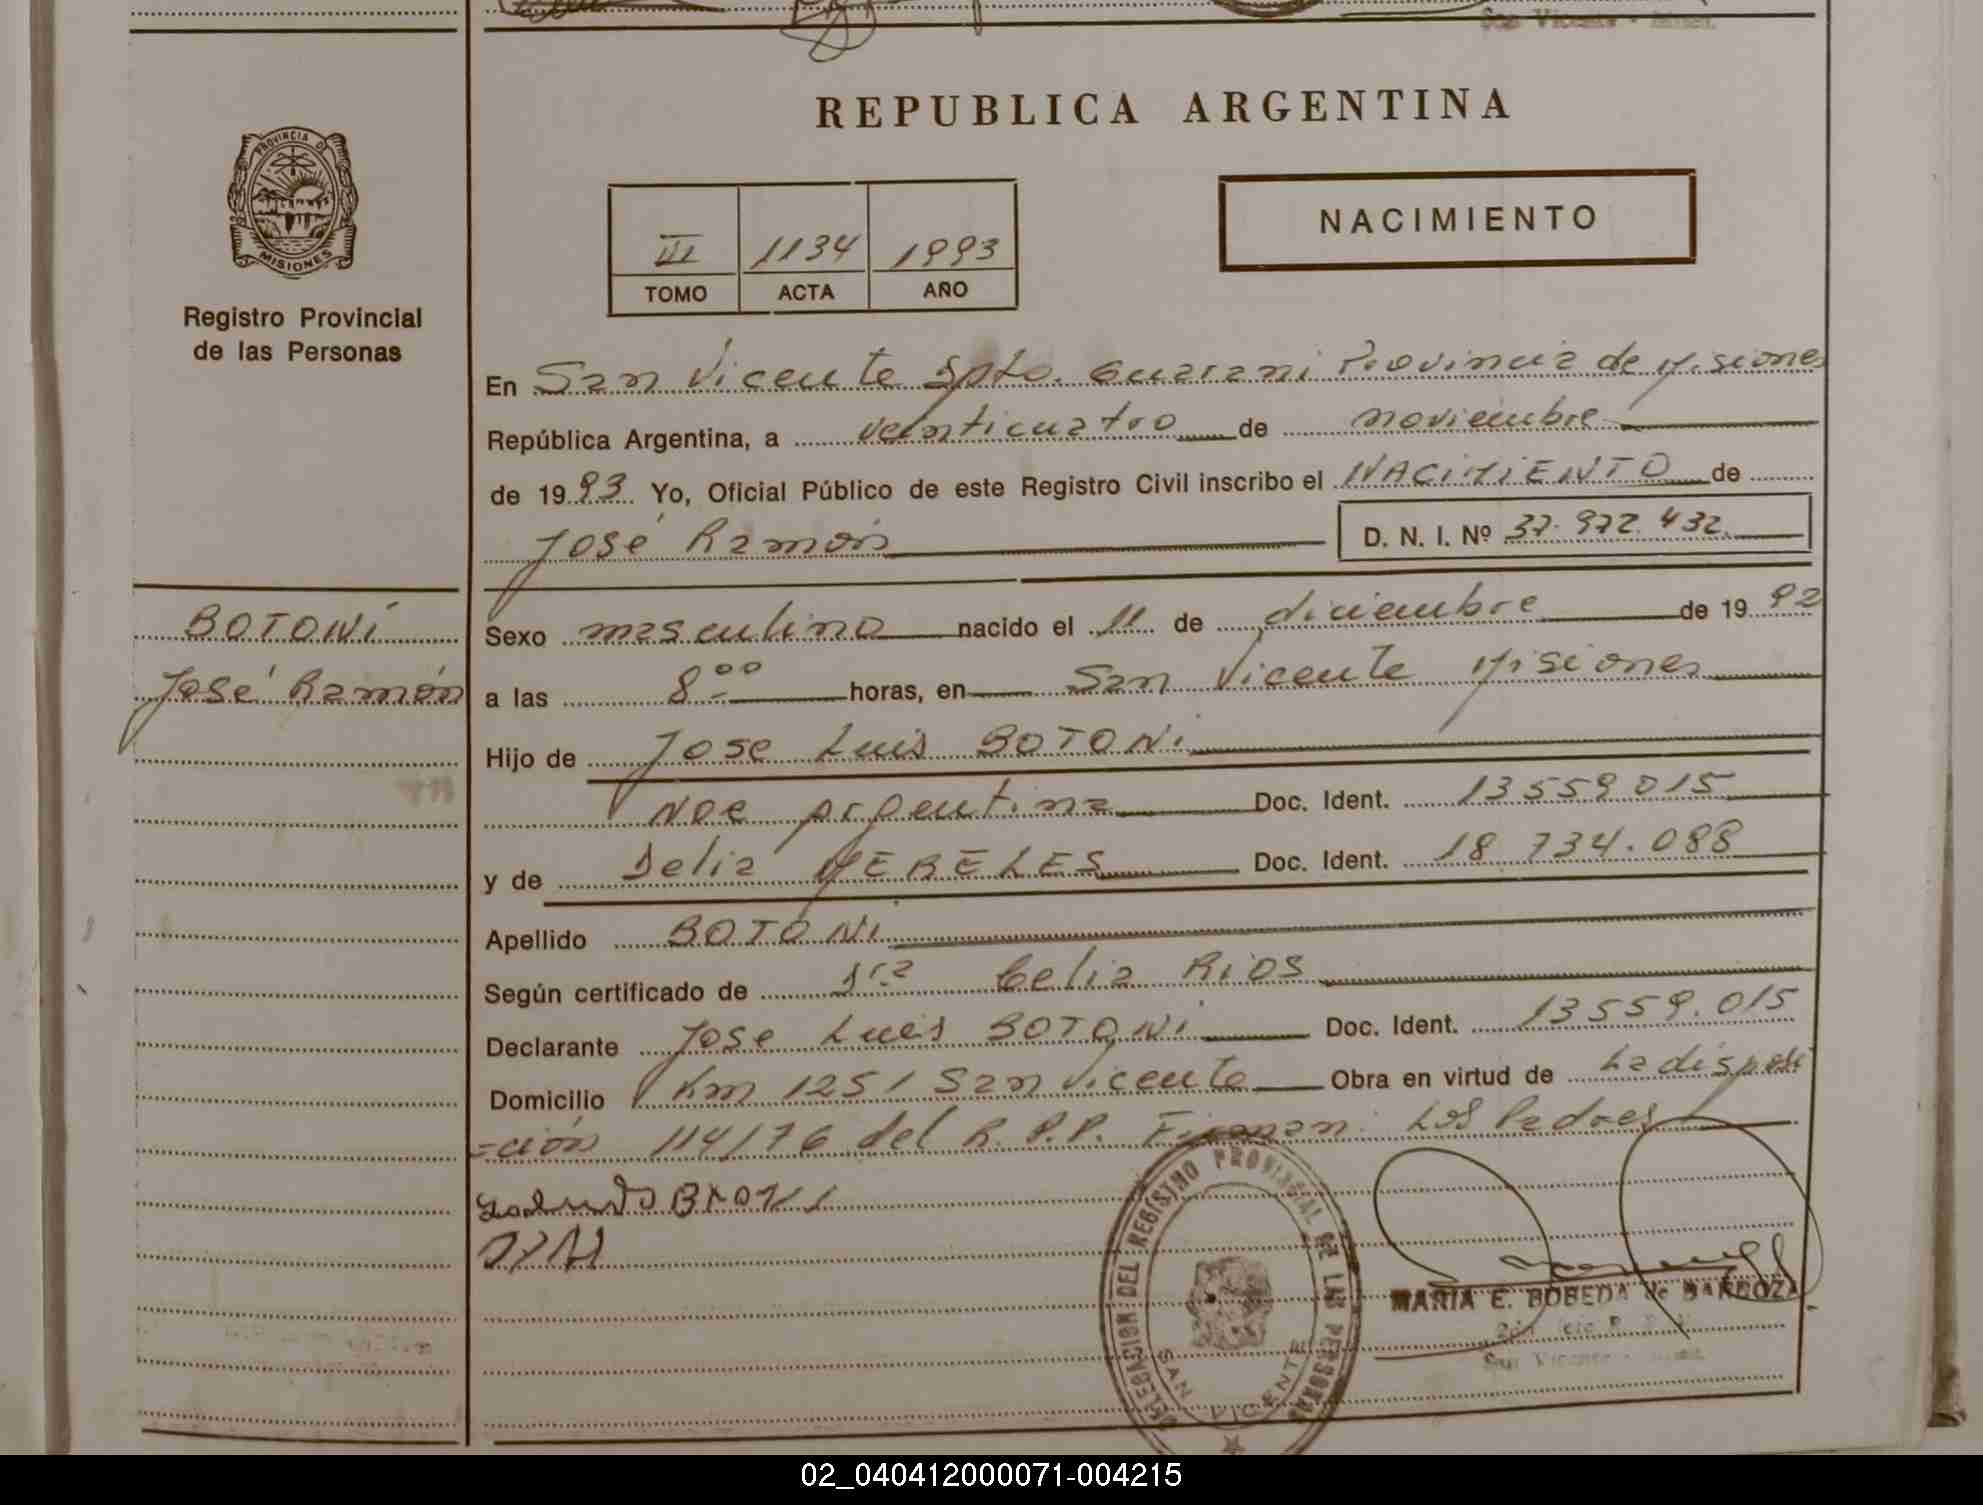 REPUBLICA ARGENTINA
PROVINCIA D
MISIONES
Registro Provincial
de las Personas
NACIMIENTO
III 1134 1993
TOMO ACTA AÑO
En San Vicente Dpto. Guarani Provincia de Misiones
República Argentina, a veinticuatro de noviembre
de 1993 Yo, Oficial Público de este Registro Civil inscribo el NACIMIENTO de
José Ramón D. N. I. Nº 37.972.432
BOTONI
José Ramón
Sexo masculino nacido el 11 de diciembre de 1992
a las 8:00 horas, en San Vicente Misiones
Hijo de Jose Luis BOTONI
Nac argentina Doc. Ident. 13559.015
y de Delia MERELES Doc. Ident. 18.734.088
Apellido BOTONI
Según certificado de Dra Celia Rios
Declarante Jose Luis BOTONI Doc. Ident. 13559.015
Domicilio Km 1251 San Vicente Obra en virtud de La disposi
=ción 114/76 del R.P.P. Firman: Los Padres
DELEGACION DEL REGISTRO PROVINCIAL DE LAS PERSONAS
SAN VICENTE
MARIA E. BOBEDA de BARROZA
San Vicente
02_040412000071-004215